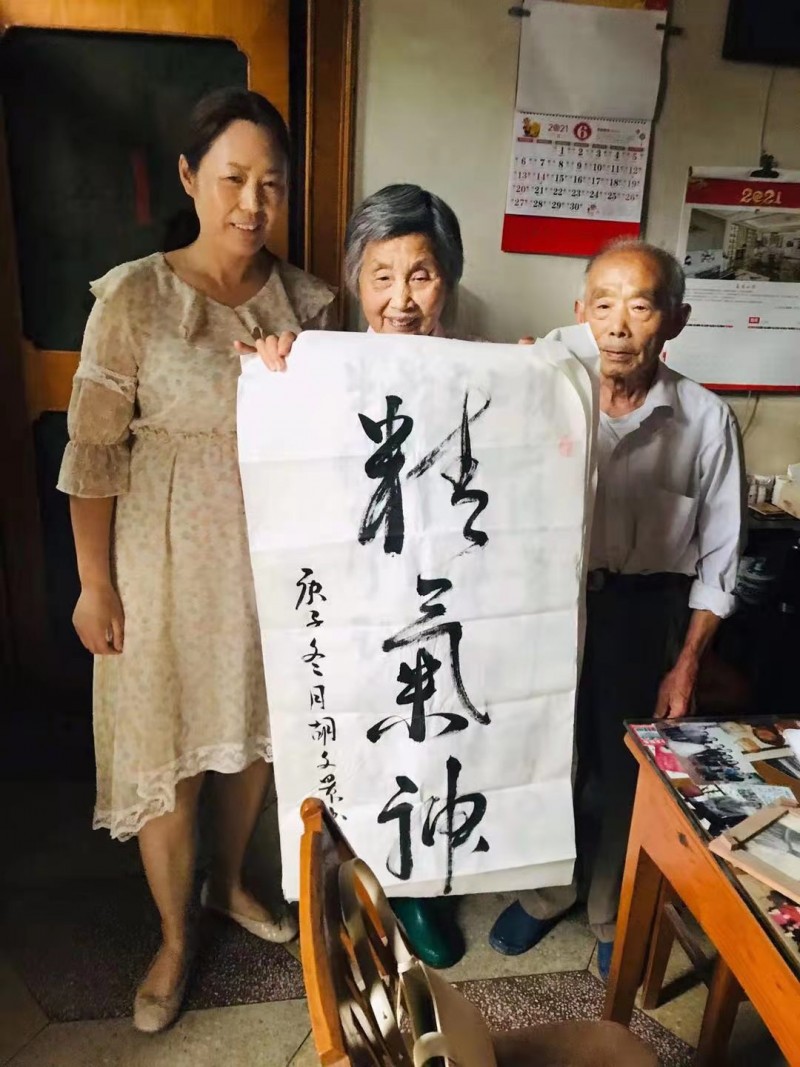 精氣神
庚子冬月胡文
2021
6
1 2 3 4 5
6 7 8 9 10 11 12
13 14 15 16 17 18 19
20 21 22 23 24 25 26
27 28 29 30
2021